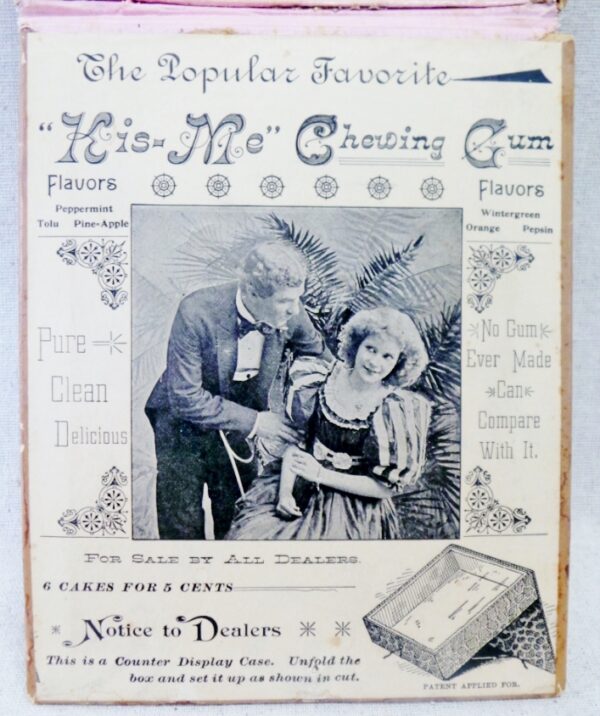 The Popular Favorite
"Kis-Me" Chewing Gum
Flavors
Peppermint
Tolu Pine-Apple
Flavors
Wintergreen
Orange Pepsin
Pure
Clean
Delicious
No Gum
Ever Made
Can
Compare
With It.
For Sale by All Dealers.
6 CAKES FOR 5 CENTS
Notice to Dealers
This is a Counter Display Case. Unfold the
box and set it up as shown in cut.
PATENT APPLIED FOR.